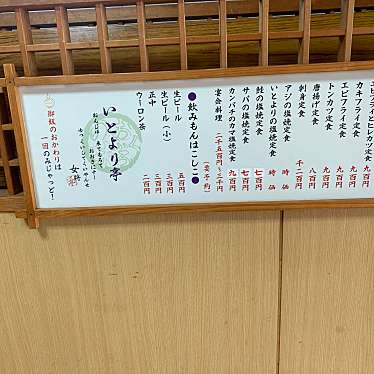 カキフライ定食 九百円
エビフライ定食 九百円
トンカツ定食 九百円
唐揚げ定食 八百円
刺身定食 千二百円
アジの塩焼定食 時価
いとよりの塩焼定食 時価
鮭の塩焼定食 七百円
サバの塩焼定食 七百円
カンパチのカマ塩焼定食 九百円
宴会料理 二千五百円〜三千円
（要予約）
●飲みもんはこしこ●
生ビール 五百円
生ビール（小） 三百円
正中 三百円
ウーロン茶 二百円
いとより亭
女将
御飯のおかわりは
一回のみじゃっど！